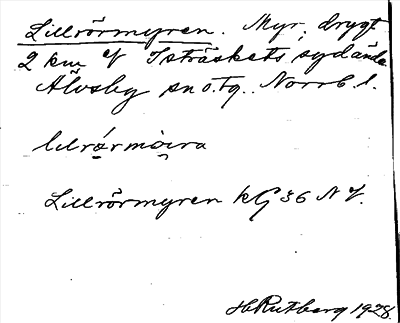 Lillrörmyren. Myr, drygt
2 km V Isträskets sydända
Älvsby sn o. tg. Norrb. l.
lılrǫ́rmòɩ̯ra
Lillrörmyren kG 36 N V.
H Rutberg 1928.